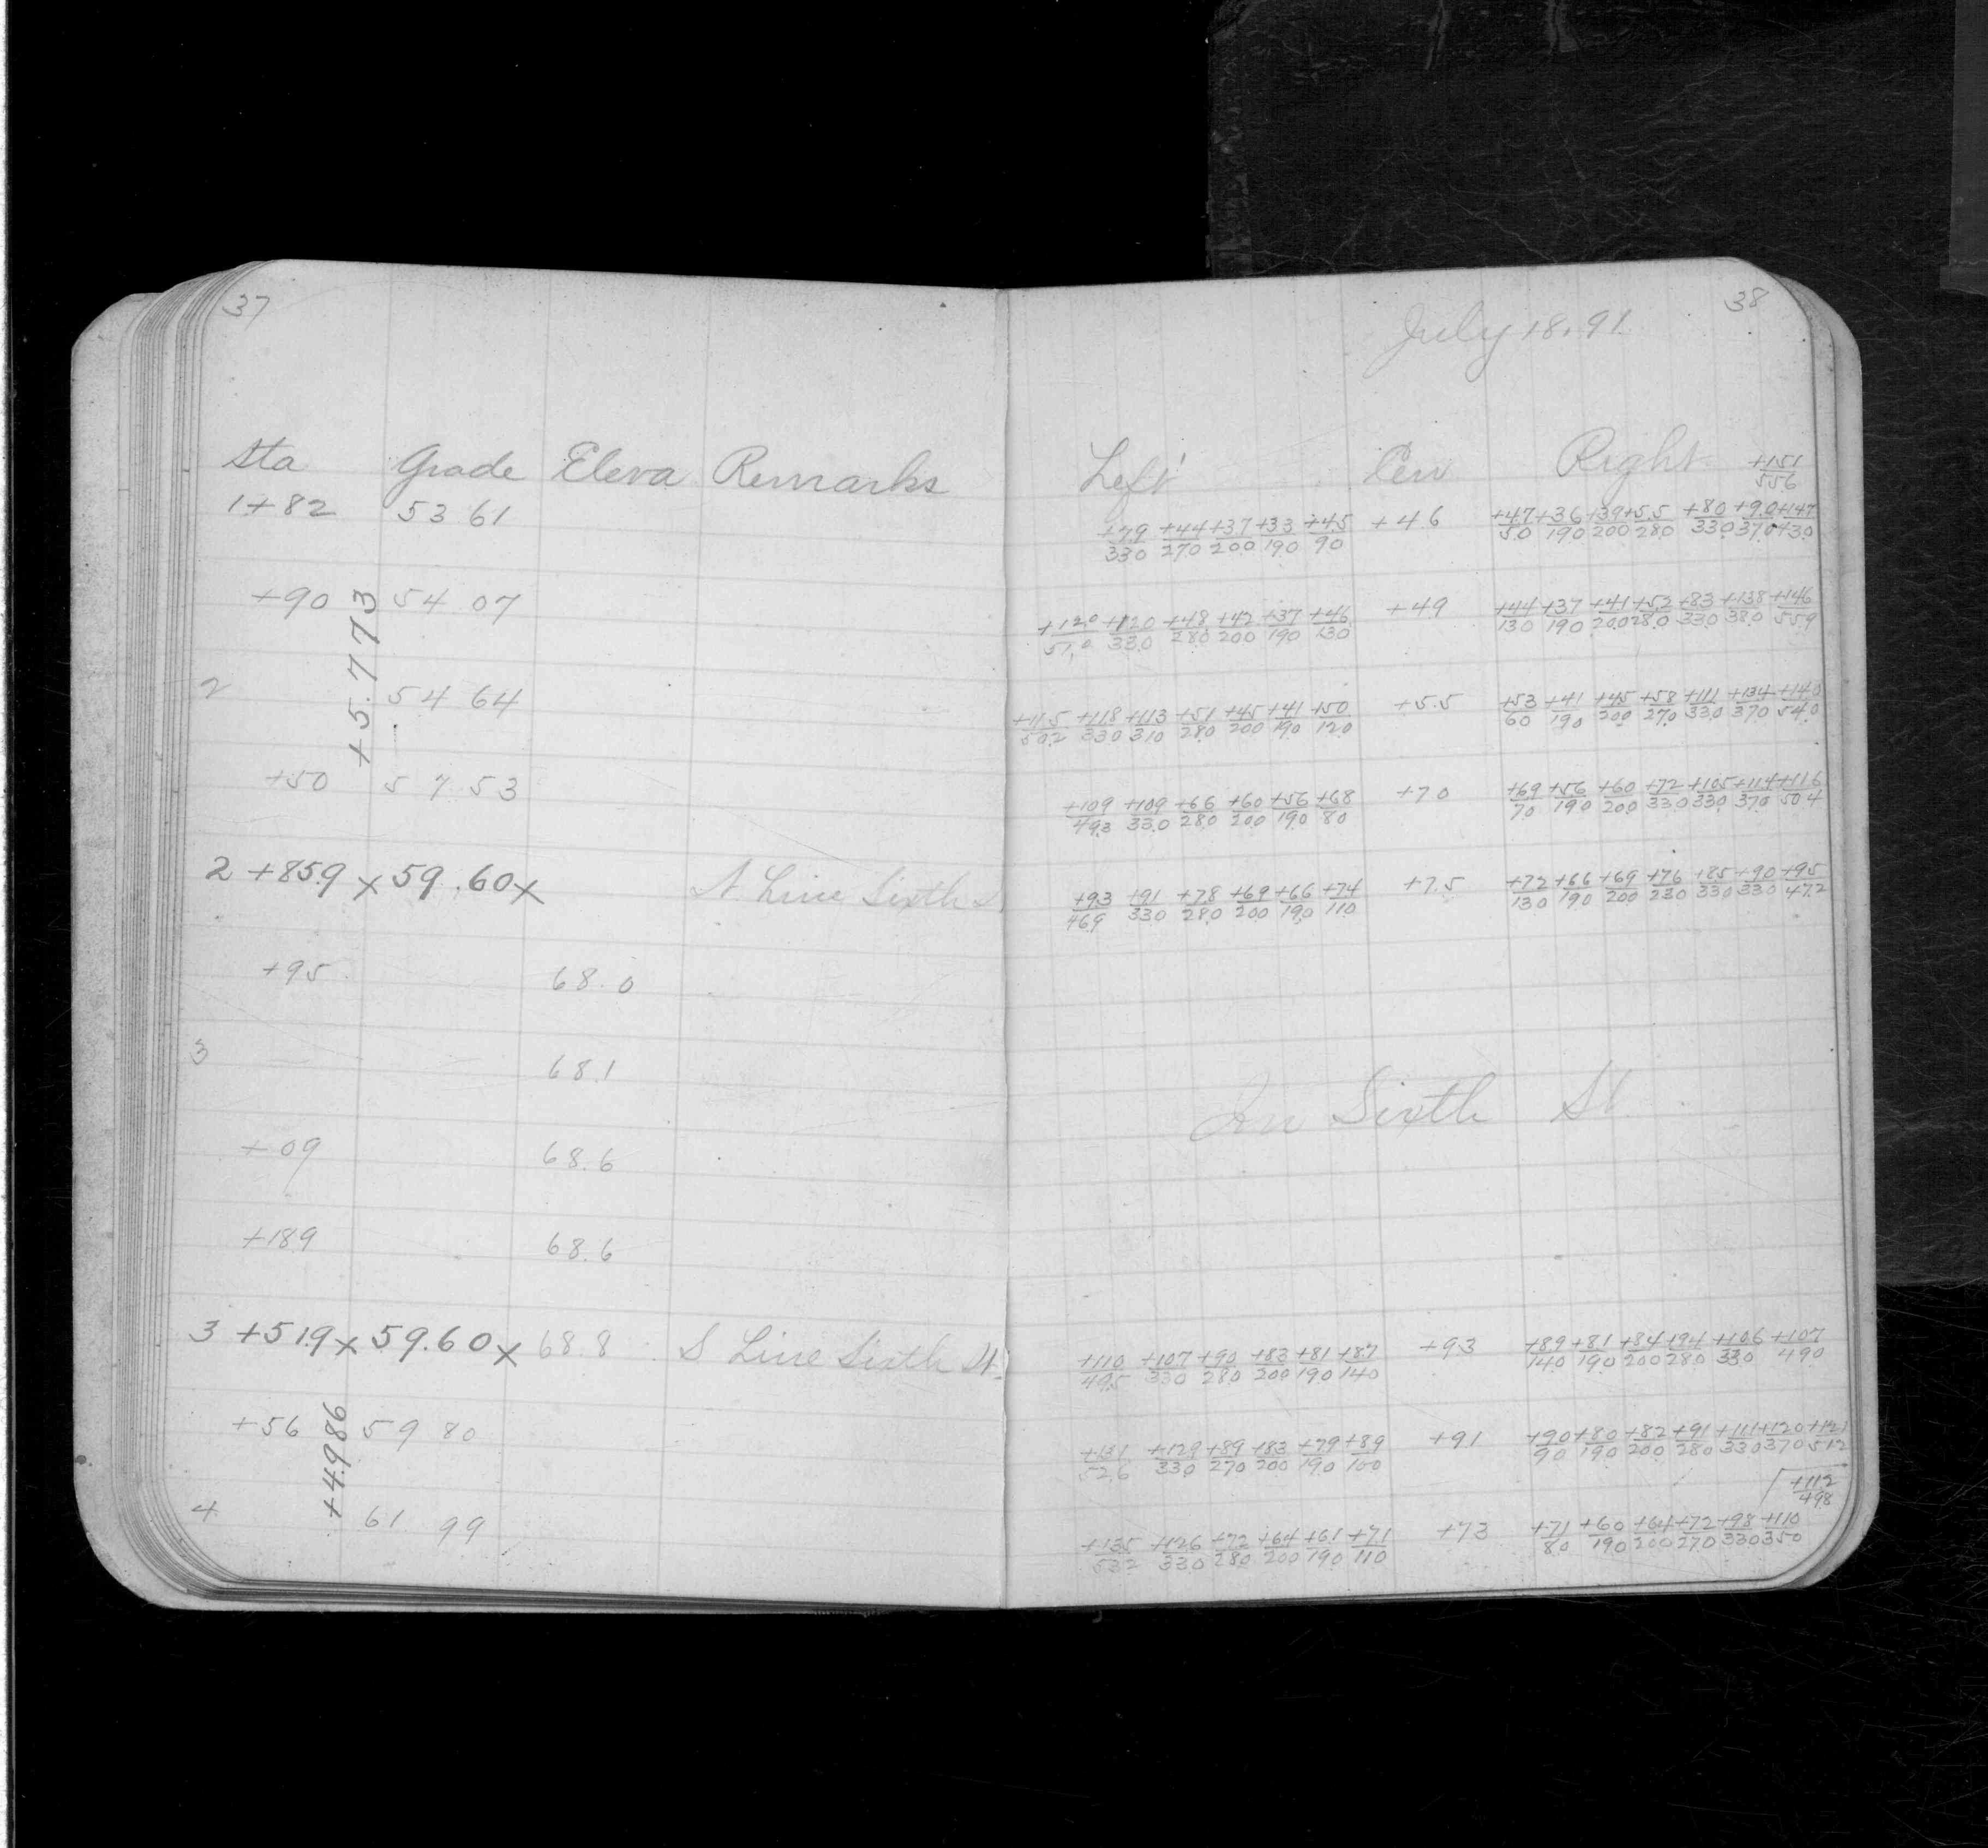 37
Sta Grade Eleva Remarks
1+82 53 61
+90 54 07
+5.773
2 54 64
+50 57 53
2 +859 x 59.60 x N. Line Sixth S
+95 68.0
3 68.1
+09 68.6
+189 68.6
3 +519 x 59.60 x 68.8 S Line Sixth St.
+56 59 80
+4.986
4 61 99
38
July 18. 91
Left Cen Right +151/556
+79/330 +44/270 +37/200 +33/190 +45/90 +46 +4.7/50 +36/190 +39/200 +5.5/280 +80/330 +9.0/370 +147/430
+120/51.0 +120/330 +48/280 +42/200 +37/190 +46/130 +49 +44/130 +37/190 +41/200 +52/280 +83/330 +138/380 +146/559
+115/502 +118/330 +113/310 +51/280 +45/200 +41/190 +50/120 +5.5 +53/60 +41/190 +45/200 +58/270 +111/330 +134/370 +140/540
+109/493 +109/330 +66/280 +60/200 +56/190 +68/80 +70 +69/70 +56/190 +60/200 +72/330 +105/330 +114/370 +116/504
+93/469 +91/330 +78/280 +69/200 +66/190 +74/110 +7.5 +72/130 +66/190 +69/200 +76/230 +85/330 +90/330 +95/472
In Sixth St.
+110/495 +107/330 +90/280 +83/200 +81/190 +87/140 +93 +89/140 +81/190 +84/200 +94/280 +106/330 +107/490
+131/526 +129/330 +89/270 +83/200 +79/190 +89/100 +91 +90/90 +80/190 +82/200 +91/280 +111/330 +120/370 +121/512
+112/498
+135/532 +126/330 +72/280 +64/200 +61/190 +71/110 +73 +71/80 +60/190 +64/200 +72/270 +98/330 +110/350